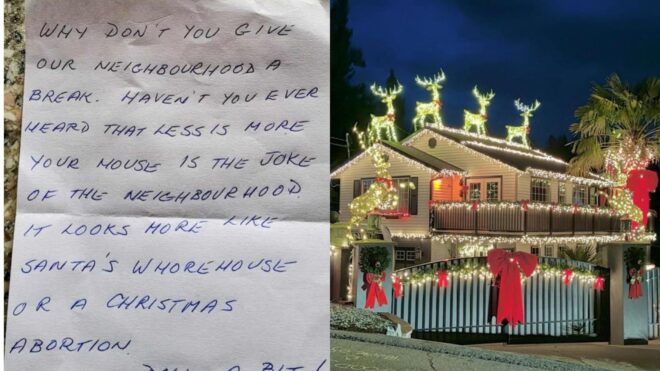 WHY DON'T YOU GIVE
OUR NEIGHBOURHOOD A
BREAK. HAVEN'T YOU EVER
HEARD THAT LESS IS MORE
YOUR HOUSE IS THE JOKE
OF THE NEIGHBOURHOOD.
IT LOOKS MORE LIKE
SANTA'S WHOREHOUSE
OR A CHRISTMAS
ABORTION.
A BIT!